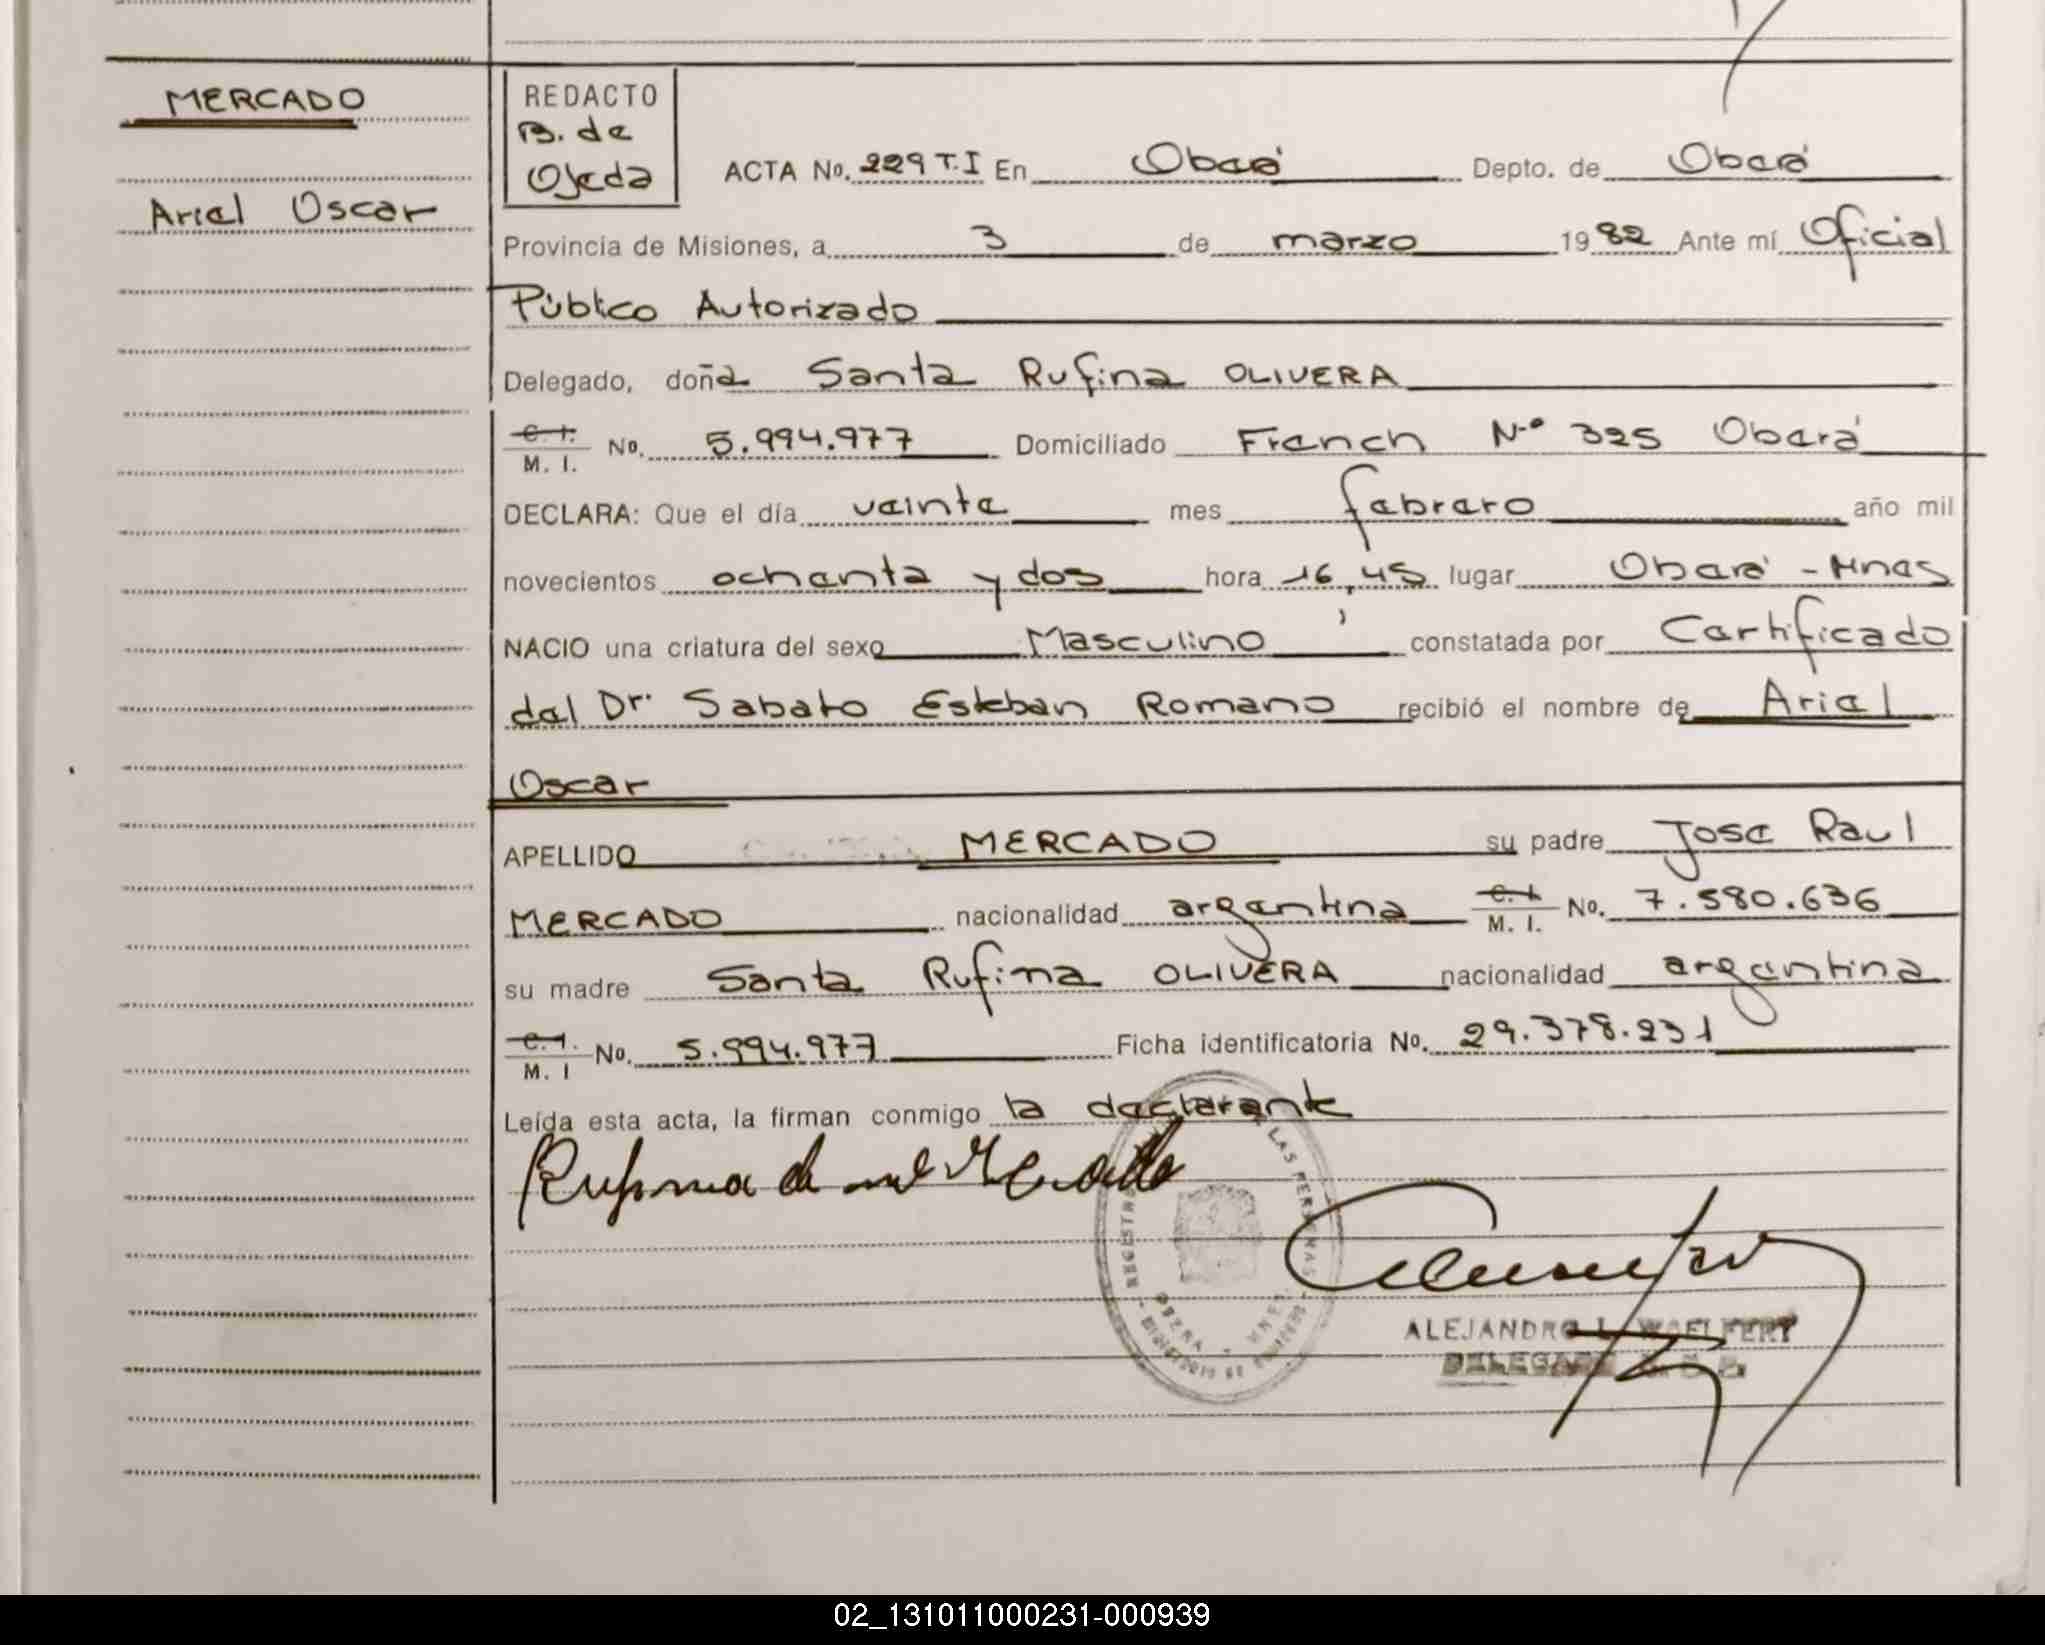 MERCADO
Ariel Oscar
REDACTO
B. de
Ojeda
ACTA No. 229 T.I En Oberá Depto. de Oberá
Provincia de Misiones, a 3 de marzo 19 82 Ante mí Oficial
Público Autorizado
Delegado, doña Santa Rufina OLIVERA
C. I. / M. I. No. 5.994.977 Domiciliado French Nº 325 Oberá
DECLARA: Que el día veinte mes febrero año mil
novecientos ochenta y dos hora 16,45 lugar Oberá - Mnes
NACIO una criatura del sexo Masculino constatada por Certificado
del Dr. Sabato Esteban Romano recibió el nombre de Ariel
Oscar
APELLIDO MERCADO su padre Jose Raul
MERCADO nacionalidad argentina C. I. / M. I. No. 7.580.636
su madre Santa Rufina OLIVERA nacionalidad argentina
C. I. / M. I No. 5.994.977 Ficha identificatoria No. 29.378.231
Leída esta acta, la firman conmigo la declarante
Rufina de Mercado
LAS PERSONAS
OBERA
ALEJANDRO L. WOELFERT
DELEGADO
02_131011000231-000939